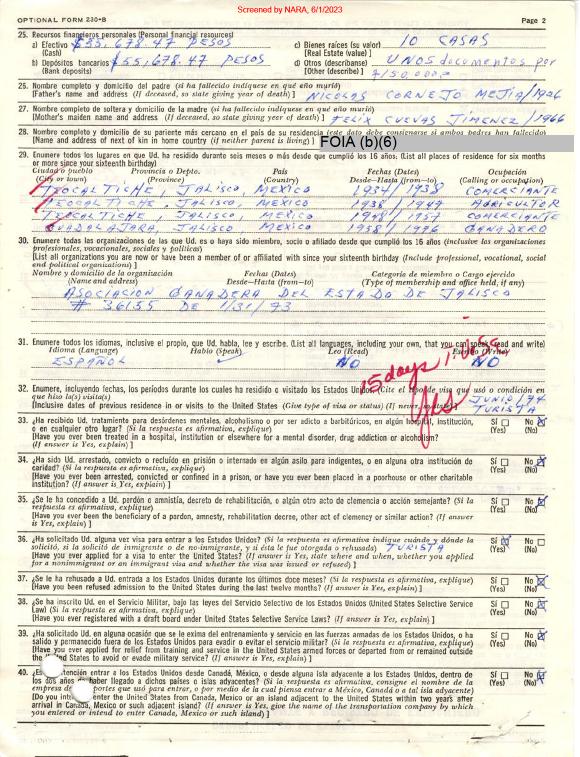 Screened by NARA, 6/1/2023
OPTIONAL FORM 230-B
Page 2
25. Recursos financieros personales (Personal financial resources)
a) Efectivo $55,678.47 PESOS
(Cash)
c) Bienes raíces (su valor) 10 CASAS
[Real Estate (value) ]
b) Depósitos bancarios $55,678.47 PESOS
(Bank deposits)
d) Otros (descríbanse) UNOS documentos por
[Other (describe) ]
26. Nombre completo y domicilio del padre (si ha fallecido indíquese en qué año murió)
[Father's name and address (If deceased, so state giving year of death) ] NICOLAS CORNEJO MEJIA/1926
27. Nombre completo de soltera y domicilio de la madre (si ha fallecido indíquese en qué año murió)
[Mother's maiden name and address (If deceased, so state giving year of death) ] FELIX CUEVAS JIMENEZ /1966
28. Nombre completo y domicilio de su pariente más cercano en el país de su residencia (este dato debe consignarse si ambos padres han fallecido)
[Name and address of next of kin in home country (if neither parent is living) ] FOIA (b)(6)
29. Enumere todos los lugares en que Ud. ha residido durante seis meses o más desde que cumplió los 16 años: (List all places of residence for six months
or more since your sixteenth birthday)
Ciudad o pueblo Provincia o Depto. País Fechas (Dates) Ocupación
(City or town) (Province) (Country) Desde—Hasta (from—to) (Calling or occupation)
TEOCALTICHE, JALISCO, MEXICO 1937/1938 COMERCIANTE
TEOCALTICHE, JALISCO, MEXICO 1938/1947 AGRICULTOR
TEOCALTICHE, JALISCO, MEXICO 1948/1957 COMERCIANTE
GUADALAJARA, JALISCO, MEXICO 1958/1976 GANADERO
30. Enumere todas las organizaciones de que Ud. es o haya sido miembro, socio o afiliado desde que cumplió los 16 años (inclusive las organizaciones
profesionales, vocacionales, sociales y políticas)
[List all organizations you are now or have been a member of or affiliated with since your sixteenth birthday (Include professional, vocational, social
and political organizations) ]
Nombre y domicilio de la organización Fechas (Dates) Categoría de miembro o Cargo ejercido
(Name and address) Desde—Hasta (from—to) (Type of membership and office held, if any)
ASOCIACION GANADERA DEL ESTADO DE JALISCO
# 36135 DE 1/31/73
31. Enumere todos los idiomas, inclusive el propio, que Ud. habla, lee y escribe. (List all languages, including your own, that you can speak, read and write)
Idioma (Language) Hablo (Speak) Leo (Read) Escribo (Write)
ESPAÑOL NO NO
15 days
32. Enumere, incluyendo fechas, los períodos durante los cuales ha residido o visitado los Estados Unidos. (Cite el tipo de visa que usó o condición en
que hizo la(s) visita(s)
[Inclusive dates of previous residence in or visits to the United States (Give type of visa or status) (If never, so state) ] JUNIO/74
TURISTA
33. ¿Ha recibido Ud. tratamiento para desórdenes mentales, alcoholismo o por ser adicto a barbitúricos, en algún hospital, institución,
o en cualquier otro lugar? (Si la respuesta es afirmativa, explique) Sí (Yes) No (No)
[Have you ever been treated in a hospital, institution or elsewhere for a mental disorder, drug addiction or alcoholism?
(If answer is Yes, explain) ]
34. ¿Ha sido Ud. arrestado, convicto o recluido en prisión o internado en algún asilo para indigentes, o en alguna otra institución de
caridad? (Si la respuesta es afirmativa, explique) Sí (Yes) No (No)
[Have you ever been arrested, convicted or confined in a prison, or have you ever been placed in a poorhouse or other charitable
institution? (If answer is Yes, explain) ]
35. ¿Se le ha concedido a Ud. perdón o amnistía, decreto de rehabilitación, o algún otro acto de clemencia o acción semejante? (Si la
respuesta es afirmativa, explique) Sí (Yes) No (No)
[Have you ever been the beneficiary of a pardon, amnesty, rehabilitation decree, other act of clemency or similar action? (If answer
is Yes, explain) ]
36. ¿Ha solicitado Ud. alguna vez visa para entrar a los Estados Unidos? (Si la respuesta es afirmativa indique cuándo y dónde la
solicitó, si la solicitó de inmigrante o de no-inmigrante, y si ésta le fue otorgada o rehusada) TURISTA Sí (Yes) No (No)
[Have you ever applied for a visa to enter the United States? (If answer is Yes, state where and when, whether you applied
for a nonimmigrant or an immigrant visa and whether the visa was issued or refused) ]
37. ¿Se le ha rehusado a Ud. entrada a los Estados Unidos durante los últimos doce meses? (Si la respuesta es afirmativa, explique) Sí (Yes) No (No)
[Have you been refused admission to the United States during the last twelve months? (If answer is Yes, explain) ]
38. ¿Se ha inscrito Ud. en el Servicio Militar, bajo las leyes del Servicio Selectivo de los Estados Unidos (United States Selective Service
Law) (Si la respuesta es afirmativa, explique) Sí (Yes) No (No)
[Have you ever registered with a draft board under United States Selective Service Laws? (If answer is Yes, explain) ]
39. ¿Ha solicitado Ud. en alguna ocasión que se le exima del entrenamiento y servicio en las fuerzas armadas de los Estados Unidos, o ha
salido y permanecido fuera de los Estados Unidos para evadir o evitar el servicio militar? (Si la respuesta es afirmativa, explique) Sí (Yes) No (No)
[Have you ever applied for relief from training and service in the United States armed forces or departed from or remained outside
the United States to avoid or evade military service? (If answer is Yes, explain) ]
40. intención entrar a los Estados Unidos desde Canadá, México, o desde alguna isla adyacente a los Estados Unidos, dentro de
los dos años de haber llegado a dichos países o islas adyacentes? (Si la respuesta es afirmativa, consigne el nombre de la
empresa de portes que usó para entrar, o por medio de la cual piensa entrar a México, Canadá o a tal isla adyacente) Sí (Yes) No (No)
[Do you intend enter the United States from Canada, Mexico or an island adjacent to the United States within two years after
arrival in Canada, Mexico or such adjacent island? (If answer is Yes, give the name of the transportation company by which
you entered or intend to enter Canada, Mexico or such island) ]